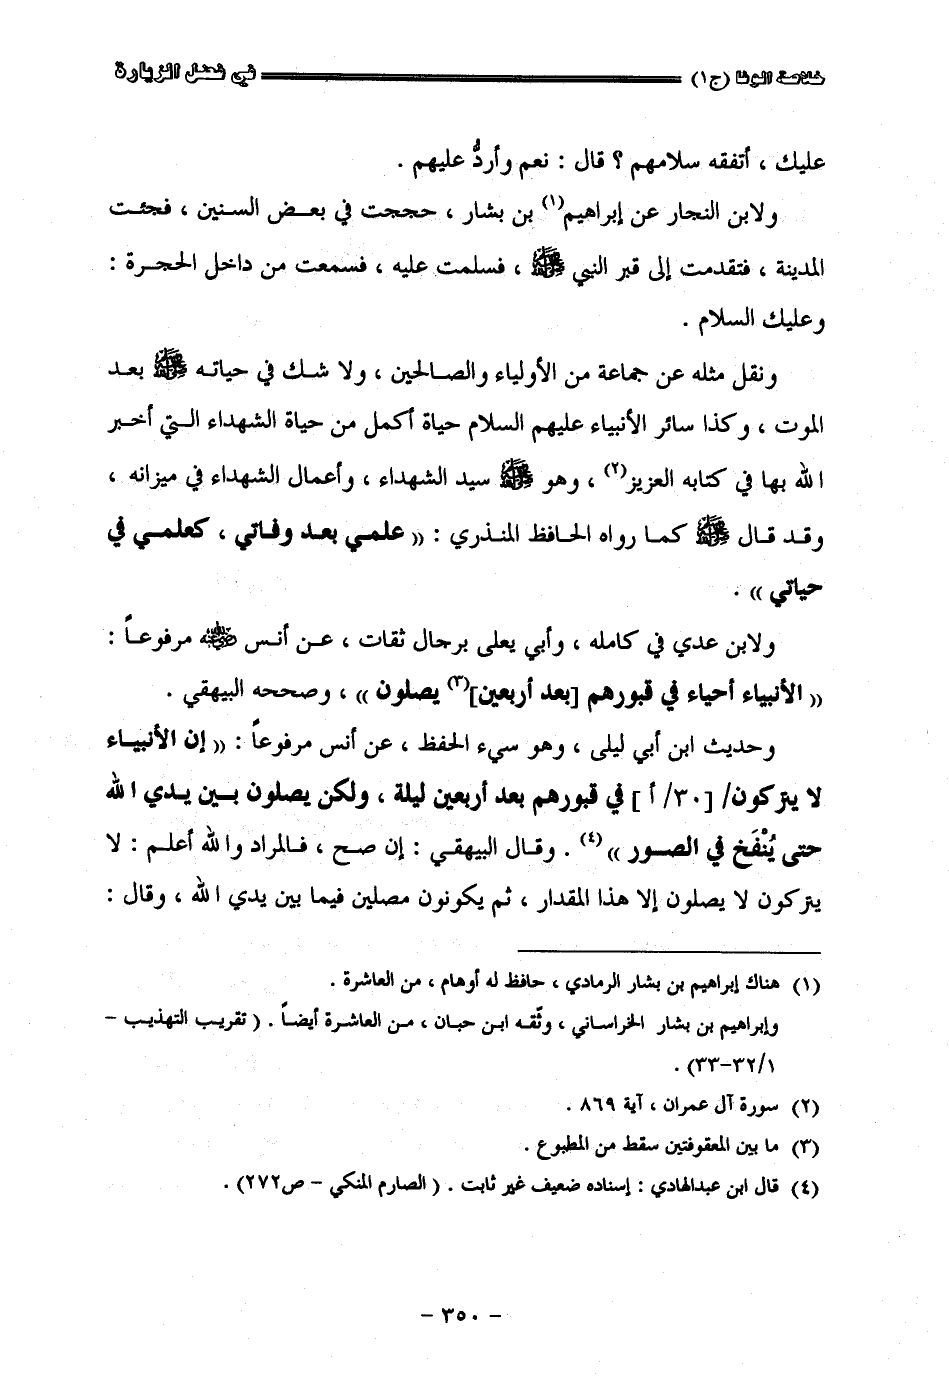 خلاصة الوفا (ج١)
في فضل الزيارة
عليك ، أتفقه سلامهم ؟ قال : نعم وأردُّ عليهم .
ولابن النجار عن إبراهيم(١) بن بشار ، حججت في بعـض السـنين ، فجئـت
المدينة ، فتقدمت إلى قبر النبي ﷺ ، فسلمت عليه ، فسمعت من داخل الحجـرة :
وعليك السلام .
ونقل مثله عن جماعة من الأولياء والصـالحين ، ولا شـك في حياتـه ﷺ بعـد
الموت ، وكذا سائر الأنبياء عليهم السلام حياة أكمل من حياة الشهداء الـتي أخـبر
الله بها في كتابه العزيز(٢) ، وهو ﷺ سيد الشهداء ، وأعمال الشهداء في ميزانه ،
وقـد قـال ﷺ كمـا رواه الحـافظ المنـذري : (( علمـي بعـد وفـاتي ، كعلمـي في
حياتي )) .
ولابن عدي في كامله ، وأبي يعلى برجال ثقات ، عـن أنـس رضي الله عنه مرفوعـاً :
(( الأنبياء أحياء في قبورهم [بعد أربعين](٣) يصلون )) ، وصححه البيهقي .
وحديث ابن أبي ليلى ، وهو سيء الحفظ ، عن أنس مرفوعاً : (( إن الأنبيـاء
لا يتركون/ [٣٠/ أ ] في قبورهم بعد أربعين ليلة ، ولكن يصلون بـين يـدي الله
حتى يُنْفَخ في الصـور ))(٤) . وقـال البيهقـي : إن صـح ، فـالمراد والله أعلـم : لا
يتركون لا يصلون إلا هذا المقدار ، ثم يكونون مصلين فيما بين يدي الله ، وقال :
(١) هناك إبراهيم بن بشار الرمادي ، حافظ له أوهام ، من العاشرة .
وإبراهيم بن بشار الخراسـاني ، وثّقـه ابـن حبـان ، مـن العاشـرة أيضـاً . ( تقريـب التهذيـب –
١/ ٣٢–٣٣) .
(٢) سورة آل عمران ، آية ٨٦٩ .
(٣) ما بين المعقوفتين سقط من المطبوع .
(٤) قال ابن عبدالهادي : إسناده ضعيف غير ثابت . ( الصارم المنكي – ص٢٧٢) .
– ٣٥٠ –